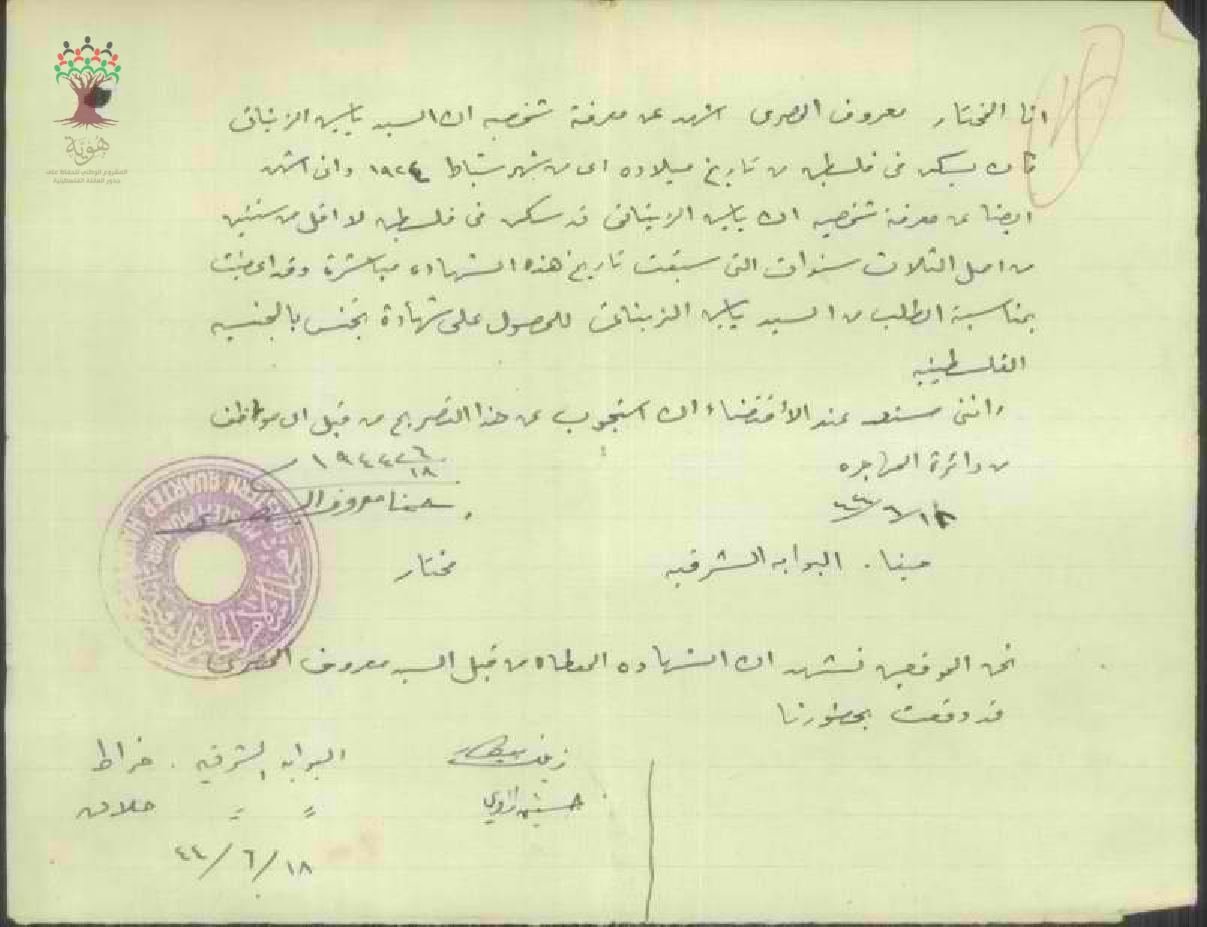 هوية
المشروع الوطني للحفاظ على
جذور العائلة الفلسطينية
انا المختار معروف المصري اشهد عن معرفة شخصيه ان السيد ياسين الزيناتي
كان يسكن في فلسطين من تاريخ ميلاده اى من شهر شباط ١٩٢٤ واني اشهد
ايضا عن معرفة شخصيه ان ياسين الزيناتي قد سكن في فلسطين لا اقل من سنتين
من اصل الثلاث سنوات التى سبقت تاريخ هذه الشهاده مباشرة وقد اعطيت
بمناسبة الطلب من السيد ياسين الزيناتي للحصول على شهادة تجنس بالجنسيه
الفلسطينيه
وانني مستعد عند الأقتضاء ان استجوب عن هذا التصريح من قبل اى موظف
من دائرة المهاجره
١٨/٦/٤٤
١٨/٦ ١٩٤٤
معروف المصري
حيفا . البوابه الشرقيه مختار
EASTERN QUARTER
MOSLEM MUKHTAR
نحن الموقعين نشهد ان الشهاده المعطاه من قبل السيد معروف المصرى
قد وقعت بحضورنا
البوابه الشرقيه . خراط
حسين
" " حلاق
١٨/٦/٤٤